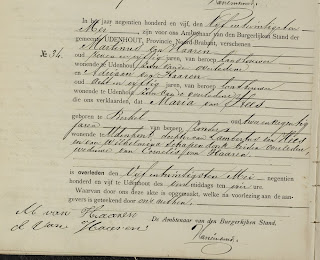 In het jaar negentien honderd en vijf, den Vijf en twintigsten
Mei, zijn voor ons Ambtenaar van den Burgerlijken Stand der
gemeente UDENHOUT, Provincie Noord-Brabant, verschenen
No. 34.
Martinus van Haaren
oud zeven en vijftig jaren, van beroep landbouwer
wonende te Udenhout
en Adriaan van Haaren
oud jaren, van beroep landbouwer
wonende te Udenhout
die ons verklaarden, dat Maria van Hees
geboren te Berkel oud twee en negentig
jaren van beroep
wonende Udenhout dochter van Lambertus van Hees
en van Wilhelmina beiden overleden
weduwe van Cornelis van Haaren
is overleden den Vijf en twintigsten Mei negentien
honderd en vijf te Udenhout des middags ten ure.
Waarvan door ons deze akte is opgemaakt, welke na voorlezing aan de aan-
gevers is geteekend door ons en hen
M van Haaren
A van Haaren
De Ambtenaar van den Burgerlijken Stand.